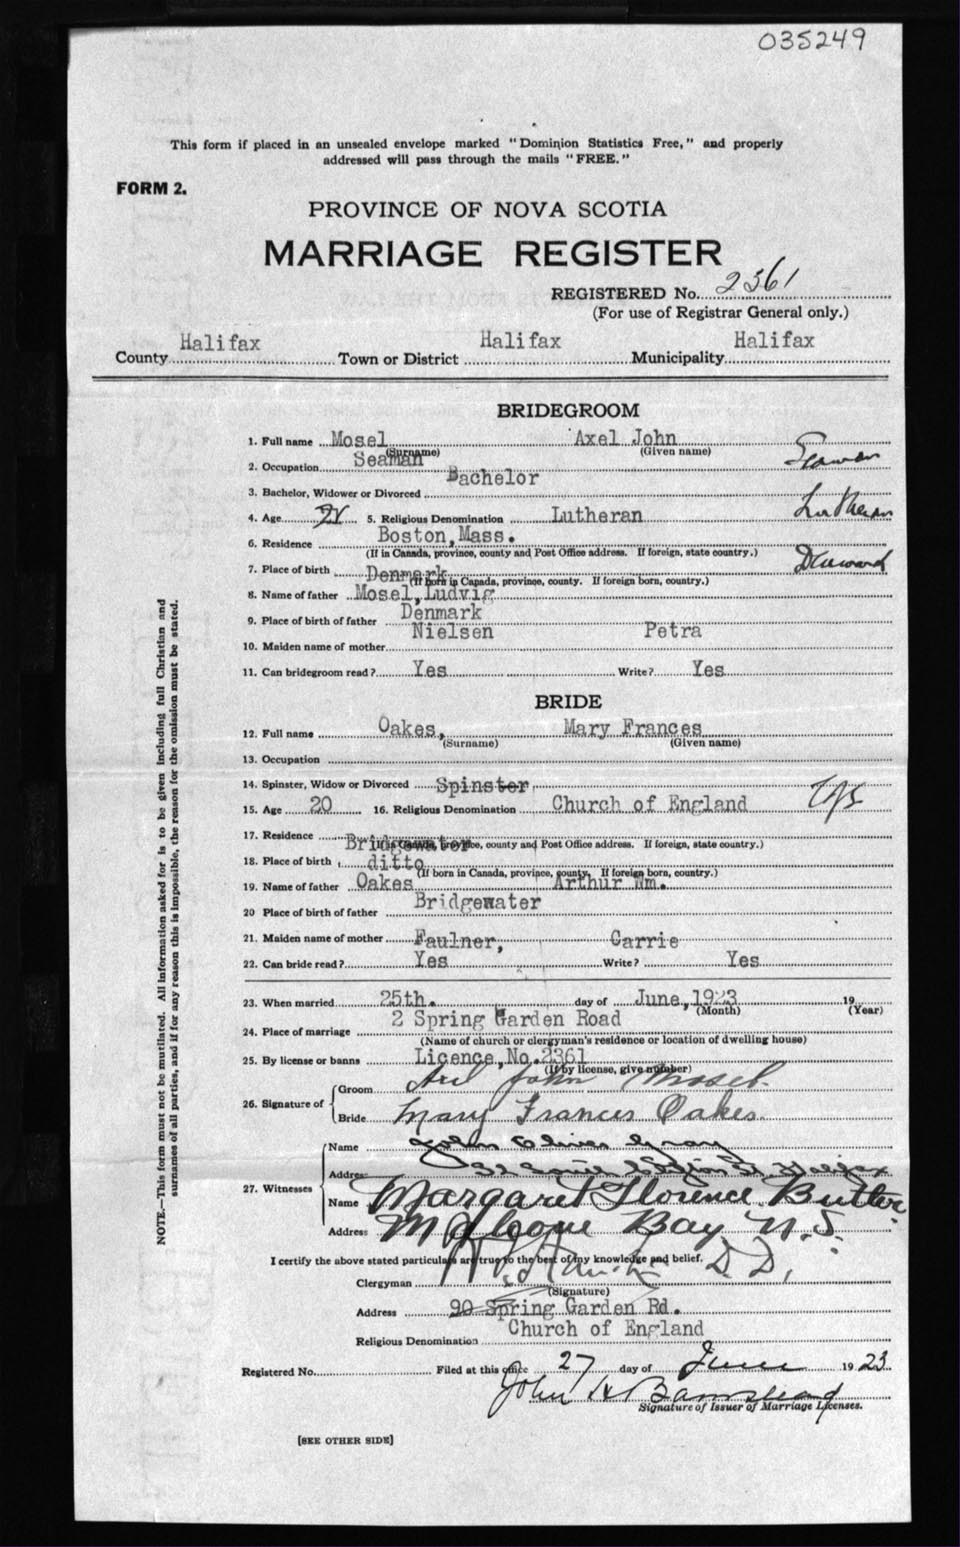 035249
This form if placed in an unsealed envelope marked "Dominion Statistics Free," and properly
addressed will pass through the mails "FREE."
FORM 2.
PROVINCE OF NOVA SCOTIA
MARRIAGE REGISTER
REGISTERED No. 2361
(For use of Registrar General only.)
County Halifax Town or District Halifax Municipality Halifax
BRIDEGROOM
1. Full name Mosel Axel John
(Surname) (Given name)
2. Occupation Seaman Seaman
3. Bachelor, Widower or Divorced Bachelor
4. Age 5. Religious Denomination Lutheran Lutheran
6. Residence Boston, Mass.
(If in Canada, province, county and Post Office address. If foreign, state country.)
7. Place of birth Denmark Denmark
(If born in Canada, province, county. If foreign born, country.)
8. Name of father Mosel, Ludvig
9. Place of birth of father Denmark
10. Maiden name of mother Nielsen Petra
11. Can bridegroom read? Yes Write? Yes
BRIDE
12. Full name Oakes, Mary Frances
(Surname) (Given name)
13. Occupation
14. Spinster, Widow or Divorced Spinster,
15. Age 20 16. Religious Denomination Church of England
17. Residence Bridgewater
(If in Canada, province, county and Post Office address. If foreign, state country.)
18. Place of birth ditto
(If born in Canada, province, county. If foreign born, country.)
19. Name of father Oakes Arthur Wm.
20 Place of birth of father Bridgewater
21. Maiden name of mother Faulner, Carrie
22. Can bride read? Yes Write? Yes
23. When married 25th. day of June, 1923 19
(Month) (Year)
24. Place of marriage 2 Spring Garden Road
(Name of church or clergyman's residence or location of dwelling house)
25. By license or banns Licence, No. 2361
(If by license, give number)
26. Signature of Groom Axel John Mosel.
Bride Mary Frances Oakes.
27. Witnesses Name John Oliver Gray
Address St Halifax
Name Margaret Florence Butler
Address Bay N.S.
I certify the above stated particulars are true to the best of my knowledge and belief.
Clergyman D.D.,
(Signature)
Address 90 Spring Garden Rd.
Religious Denomination Church of England
Registered No. Filed at this office 27 day of June 1923
John H Barnstead
Signature of Issuer of Marriage Licenses.
[SEE OTHER SIDE]
NOTE.—This form must not be mutilated. All information asked for is to be given including full Christian and
surnames of all parties, and if for any reason this is impossible, the reason for the omission must be stated.